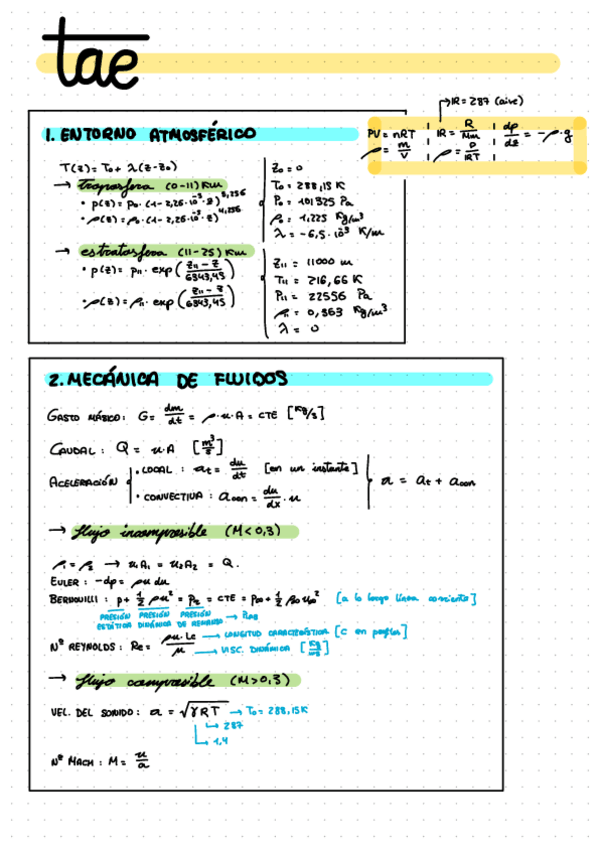 tae
IR = 287 (aire)
PV = nRT | IR = R/Mm | dp/dz = -ρ·g
ρ = m/V | ρ = P/IRT
1. ENTORNO ATMOSFÉRICO
T(z) = T₀ + λ(z-z₀)
→ troposfera (0-11) Km
• p(z) = p₀·(1-2,26·10⁻³·z)^5,256
• ρ(z) = ρ₀·(1-2,26·10⁻³·z)^4,256
z₀ = 0
T₀ = 288,15 K
P₀ = 101325 Pa
ρ₀ = 1,225 Kg/m³
λ = -6,5·10⁻³ K/m
→ estratosfera (11-25) Km
• p(z) = p₁₁·exp(z₁₁-z/6343,45)
• ρ(z) = ρ₁₁·exp(z₁₁-z/6343,45)
z₁₁ = 11000 m
T₁₁ = 216,66 K
P₁₁ = 22556 Pa
ρ₁₁ = 0,363 Kg/m³
λ = 0
2. MECÁNICA DE FLUIDOS
GASTO MÁSICO: G = dm/dt = ρ·u·A = CTE [Kg/s]
CAUDAL: Q = u·A [m³/s]
ACELERACIÓN
• LOCAL: at = du/dt [en un instante]
• CONVECTIVA: aconv = du/dx·u
a = at + aconv
→ flujo incompresible (M<0,3)
ρ₁ = ρ₂ → u₁A₁ = u₂A₂ = Q.
EULER: -dp = ρu du
BERNOUILLI: p + 1/2 ρu² = pR = CTE = p∞ + 1/2 ρ∞u∞² [a lo largo línea corriente]
PRESIÓN ESTÁTICA
PRESIÓN DINÁMICA
PRESIÓN DE REMANSO
Nº REYNOLDS: Re = ρu·Lc/μ
→ LONGITUD CARACTERÍSTICA [C en perfiles]
→ VISC. DINÁMICA [Kg/ms]
→ flujo compresible (M>0,3)
VEL. DEL SONIDO: a = √γRT → T₀ = 288,15K
→ 287
→ 1,4
Nº MACH: M = u/a